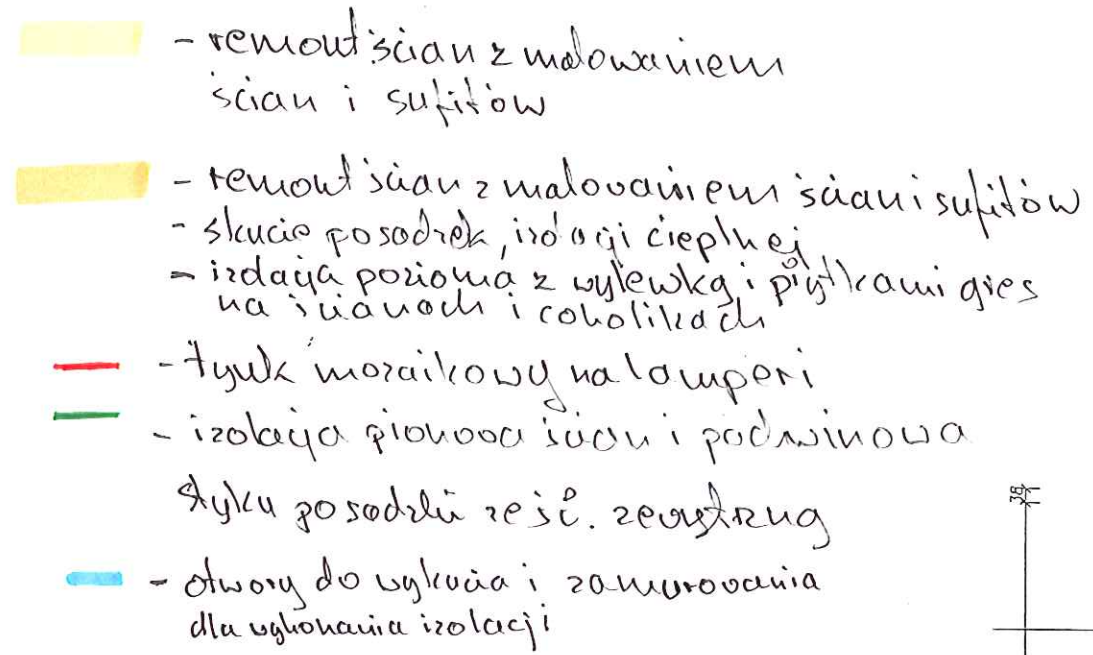 - remont ścian z malowaniem
ścian i sufitów
- remont ścian z malowaniem ścian i sufitów
- skucie posadzek, izolacji cieplnej
- izolacja pozioma z wylewką i płytkami gres
na ścianach i cokolikach
- tynk mozaikowy na lamperi
- izolacja pionowa ścian i podwinowa
styku posadzki ze śc. zewnętrzną
- otwory do wykucia i zamurowania
dla wykonania izolacji
38